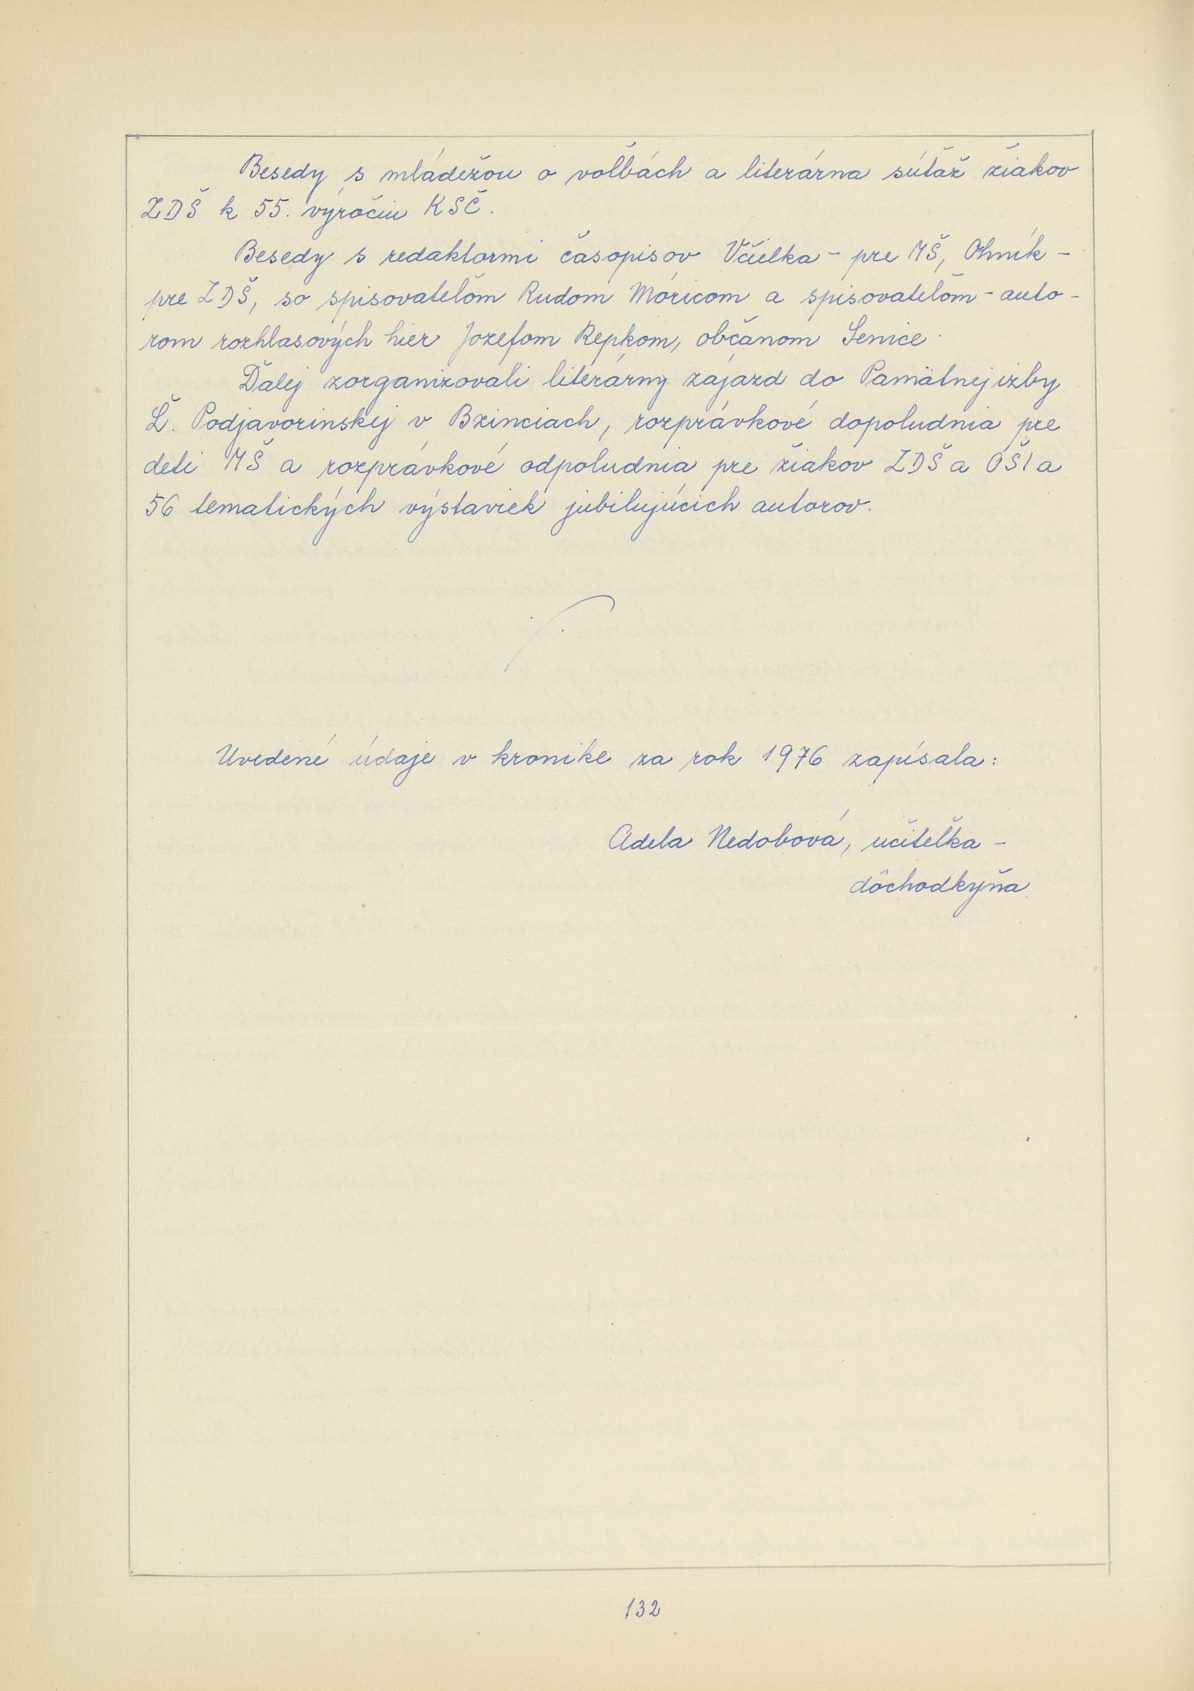 Besedy s mládežou o voľbách a literárna súťaž žiakov
ZDŠ k 55. výročiu KSČ.
Besedy s redaktormi časopisov Včielka - pre MŠ, Ohník -
pre ZDŠ, so spisovateľom Rudom Móricom a spisovateľom - auto-
rom rozhlasových hier Jozefom Repkom, občanom Senice.
Ďalej zorganizovali literárny zájazd do Pamätnej izby
Ľ. Podjavorinskej v Bzinciach, rozprávkové dopoludnia pre
deti MŠ a rozprávkové odpoludnia pre žiakov ZDŠ a OŠI a
56 tematických výstaviek jubilujúcich autorov.
Uvedené údaje v kronike za rok 1976 zapísala:
Adela Nedobová, učiteľka -
dôchodkyňa
132